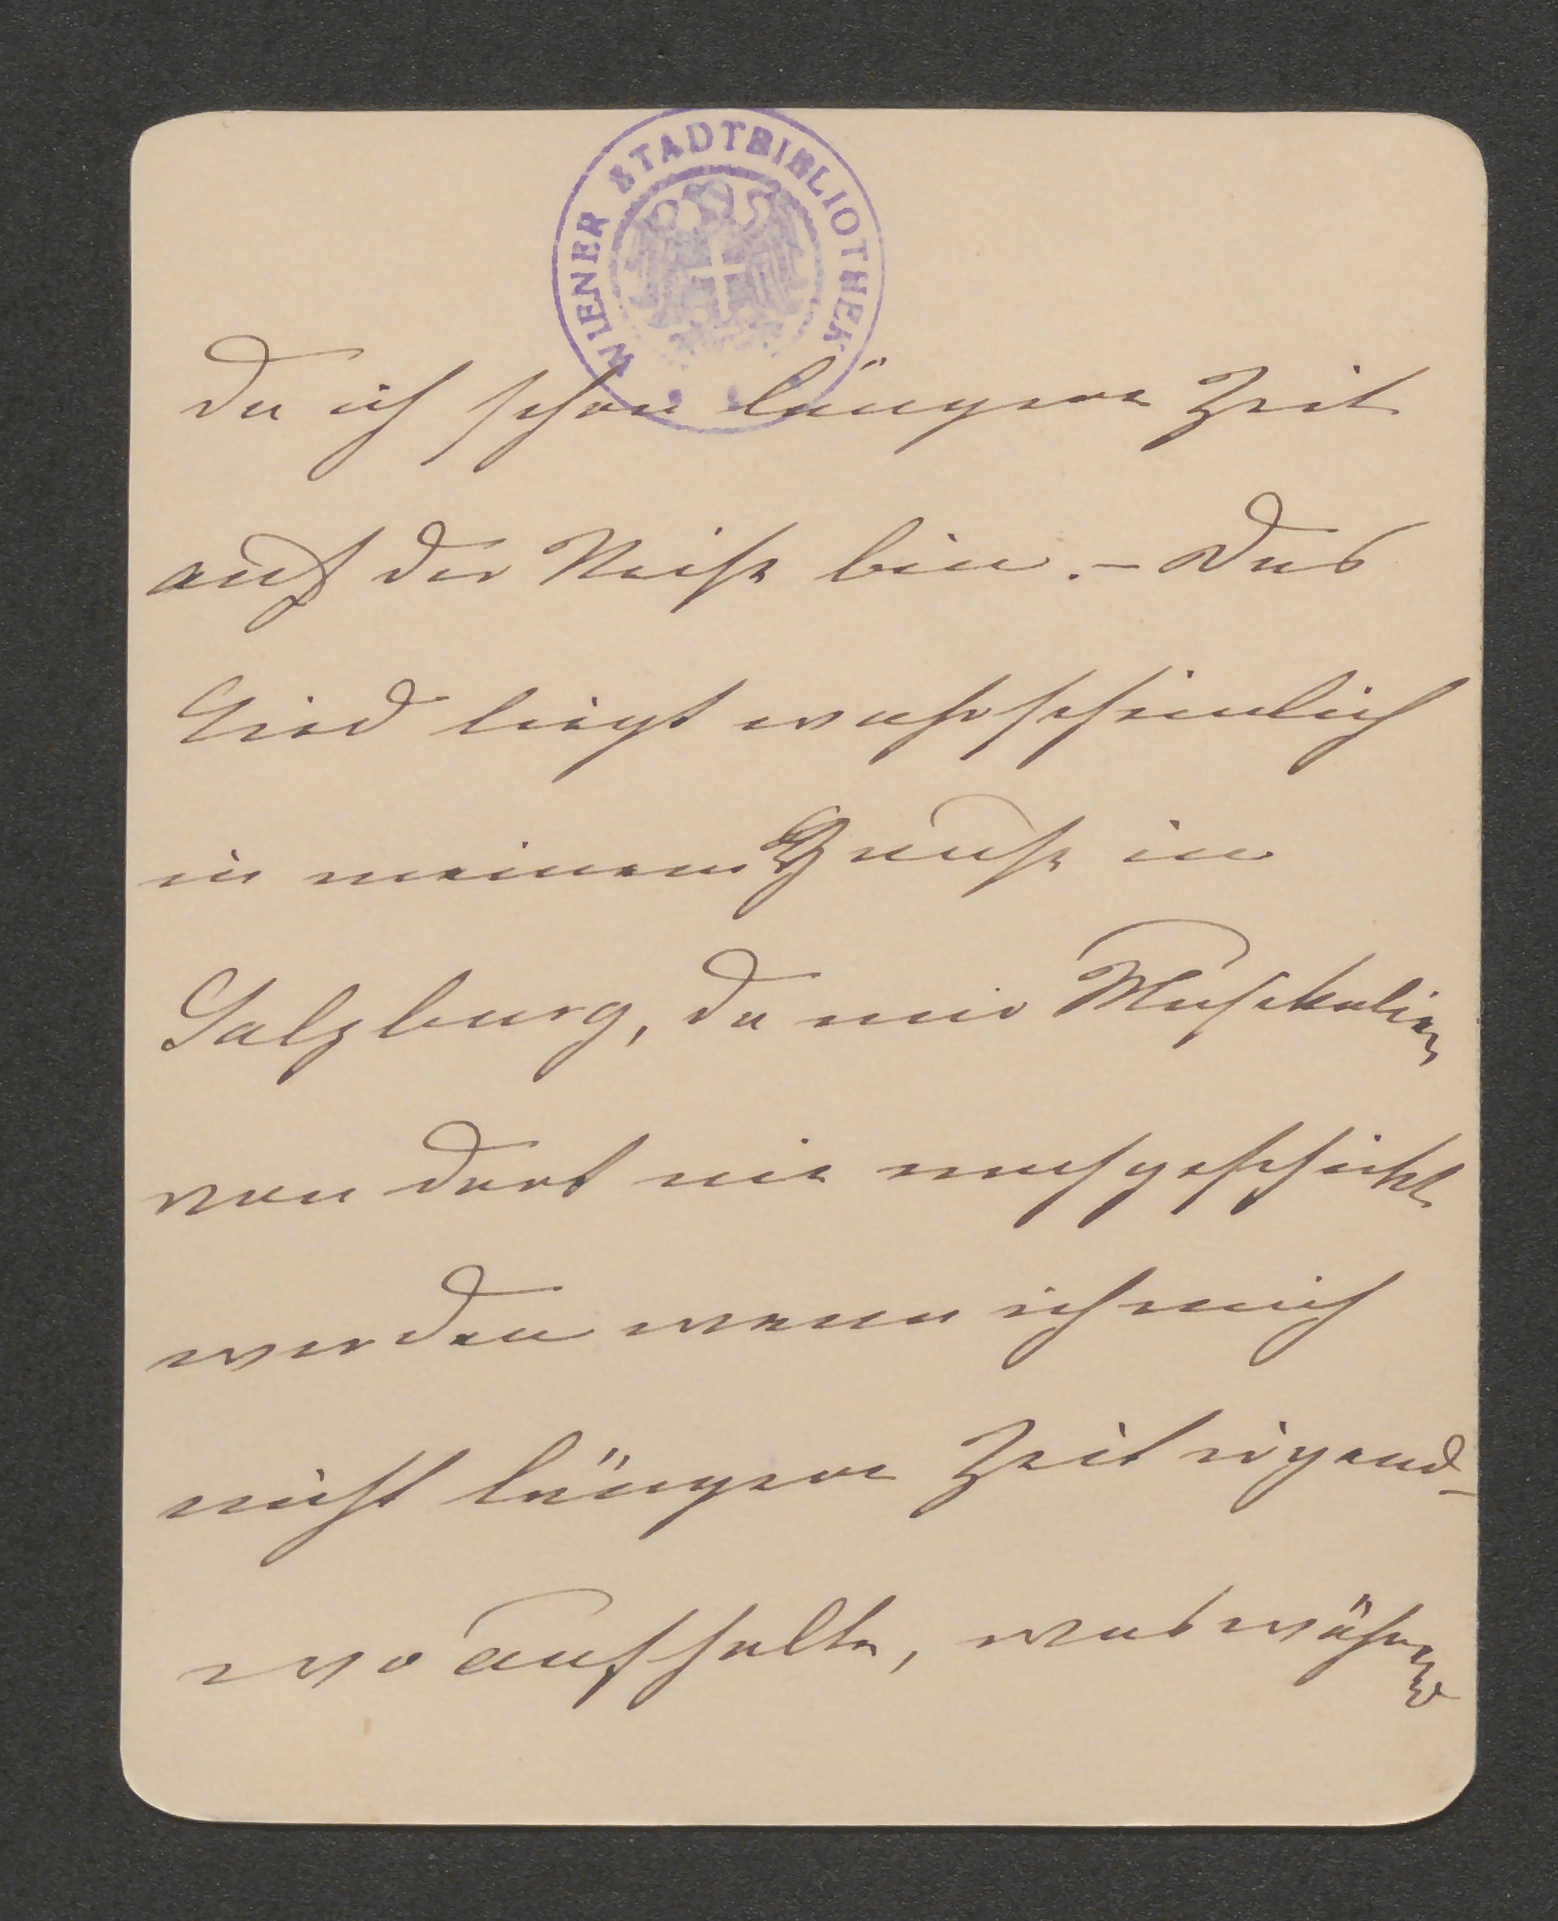 WIENER STADTBIBLIOTHEK
da ich schon längere Zeit
auf der Reise bin. – Das
Lied liegt wahrscheinlich
in meinem Hause in
Salzburg, da mir Musikalien
von dort nie nachgeschickt
werden wenn ich mich
nicht längere Zeit irgend-
wo aufhalte, was während